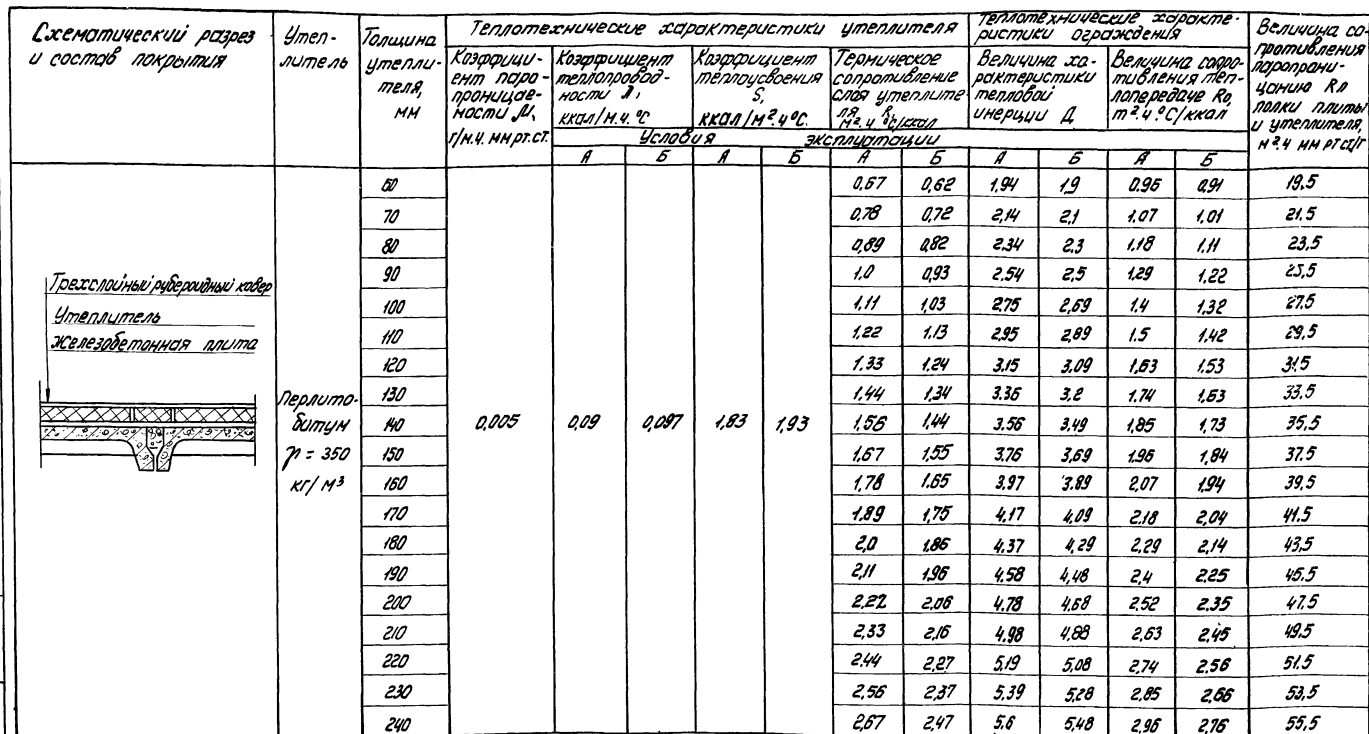 Схематический разрез
и состав покрытия
Утеп-
литель
Толщина
утепли-
теля,
мм
Теплотехнические характеристики утеплителя
Коэффици-
ент паро-
проницае-
мости μ,
г/м.ч. мм рт.ст.
Коэффициент
теплопровод-
ности λ,
ккал/м.ч. °С
Коэффициент
теплоусвоения
S,
ккал/м².ч °С.
Термическое
сопротивление
слоя утеплите-
ля, R
м².ч. °С/ккал
Теплотехнические характе-
ристики ограждения
Величина ха-
рактеристики
тепловой
инерции Д
Величина сопро-
тивления теп-
лопередаче R₀,
м².ч.°С/ккал
Величина со-
противления
паропрони-
цанию Rп
полки плиты
и утеплителя,
м².ч мм рт ст/г
Условия эксплуатации
А Б А Б А Б А Б А Б
Трехслойный рубероидный ковер
Утеплитель
Железобетонная плита
Перлито-
битум
γ = 350
кг/м³
0,005 0,09 0,097 1,83 1,93
60 0,67 0,62 1,94 1,9 0,96 0,91 19,5
70 0,78 0,72 2,14 2,1 1,07 1,01 21,5
80 0,89 0,82 2,34 2,3 1,18 1,11 23,5
90 1,0 0,93 2,54 2,5 1,29 1,22 25,5
100 1,11 1,03 2,75 2,69 1,4 1,32 27,5
110 1,22 1,13 2,95 2,89 1,5 1,42 29,5
120 1,33 1,24 3,15 3,09 1,63 1,53 31,5
130 1,44 1,34 3,36 3,2 1,74 1,63 33,5
140 1,56 1,44 3,56 3,49 1,85 1,73 35,5
150 1,67 1,55 3,76 3,69 1,96 1,84 37,5
160 1,78 1,65 3,97 3,89 2,07 1,94 39,5
170 1,89 1,75 4,17 4,09 2,18 2,04 41,5
180 2,0 1,86 4,37 4,29 2,29 2,14 43,5
190 2,11 1,96 4,58 4,48 2,4 2,25 45,5
200 2,22 2,06 4,78 4,68 2,52 2,35 47,5
210 2,33 2,16 4,98 4,88 2,63 2,45 49,5
220 2,44 2,27 5,19 5,08 2,74 2,56 51,5
230 2,56 2,37 5,39 5,28 2,85 2,66 53,5
240 2,67 2,47 5,6 5,48 2,96 2,76 55,5